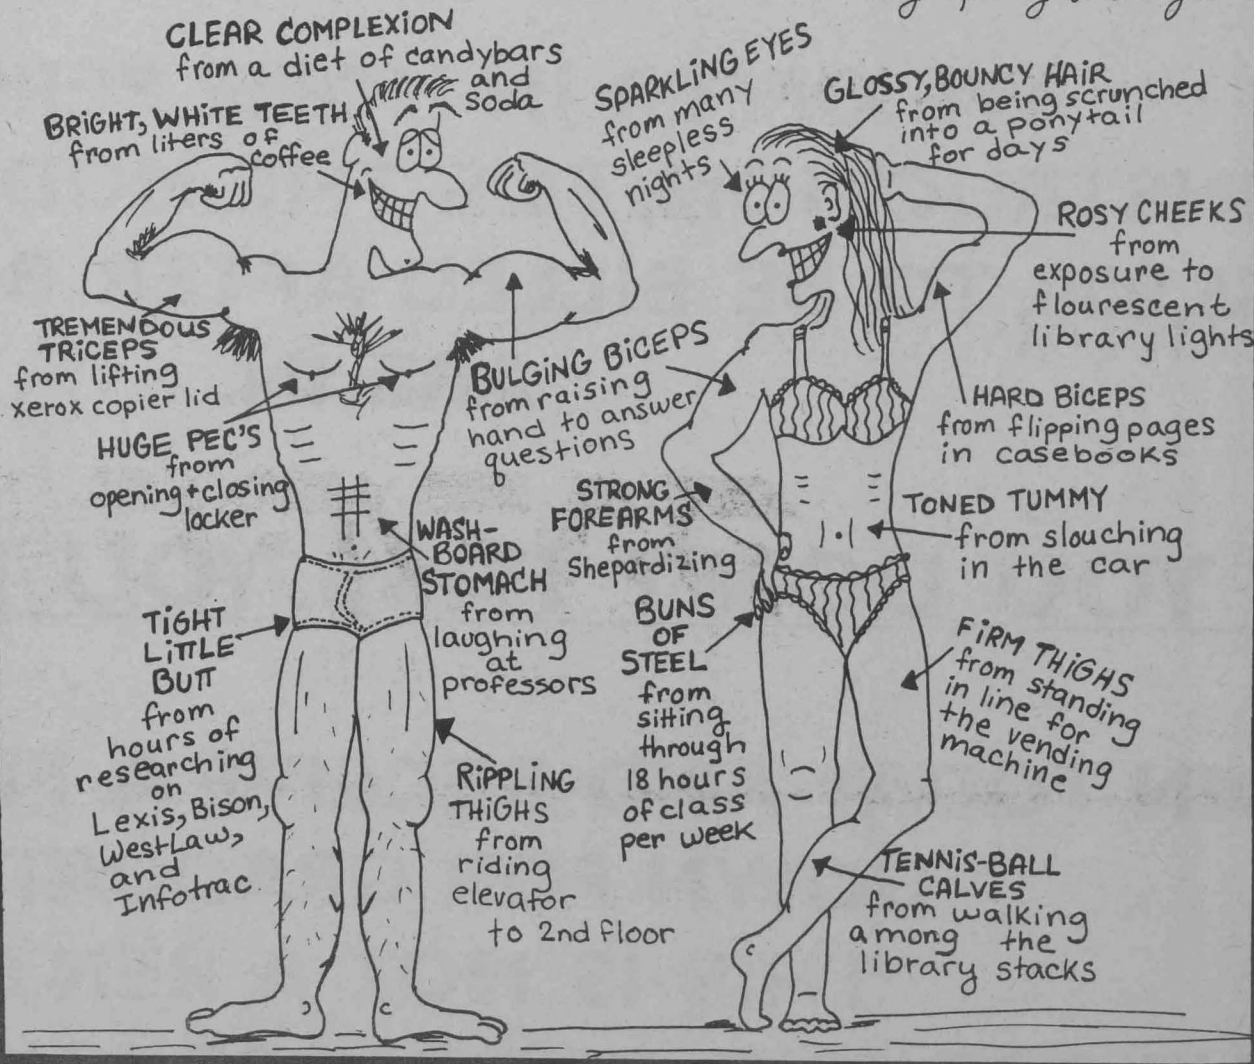 CLEAR COMPLEXION
from a diet of candybars
and
soda
BRIGHT, WHITE TEETH
from liters of
coffee
SPARKLING EYES
from many
sleepless
nights
GLOSSY, BOUNCY HAIR
from being scrunched
into a ponytail
for days
ROSY CHEEKS
from
exposure to
flourescent
library lights
TREMENDOUS
TRICEPS
from lifting
xerox copier lid
HUGE PEC'S
from
opening + closing
locker
BULGING BICEPS
from raising
hand to answer
questions
HARD BICEPS
from flipping pages
in casebooks
STRONG
FOREARMS
from
Shepardizing
TONED TUMMY
from slouching
in the car
WASH-
BOARD
STOMACH
from
laughing
at
professors
TIGHT
LITTLE
BUTT
from
hours of
researching
on
Lexis, Bison,
WestLaw,
and
Infotrac
BUNS
OF
STEEL
from
sitting
through
18 hours
of class
per week
FIRM THIGHS
from standing
in line for
the vending
machine
RIPPLING
THIGHS
from
riding
elevator
to 2nd floor
TENNIS-BALL
CALVES
from walking
among the
library stacks